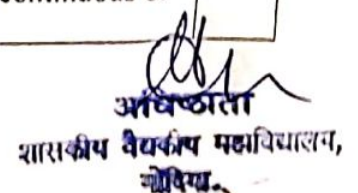 अधिष्ठाता
शासकीय वैद्यकीय महाविद्यालय,
गोंदिया.